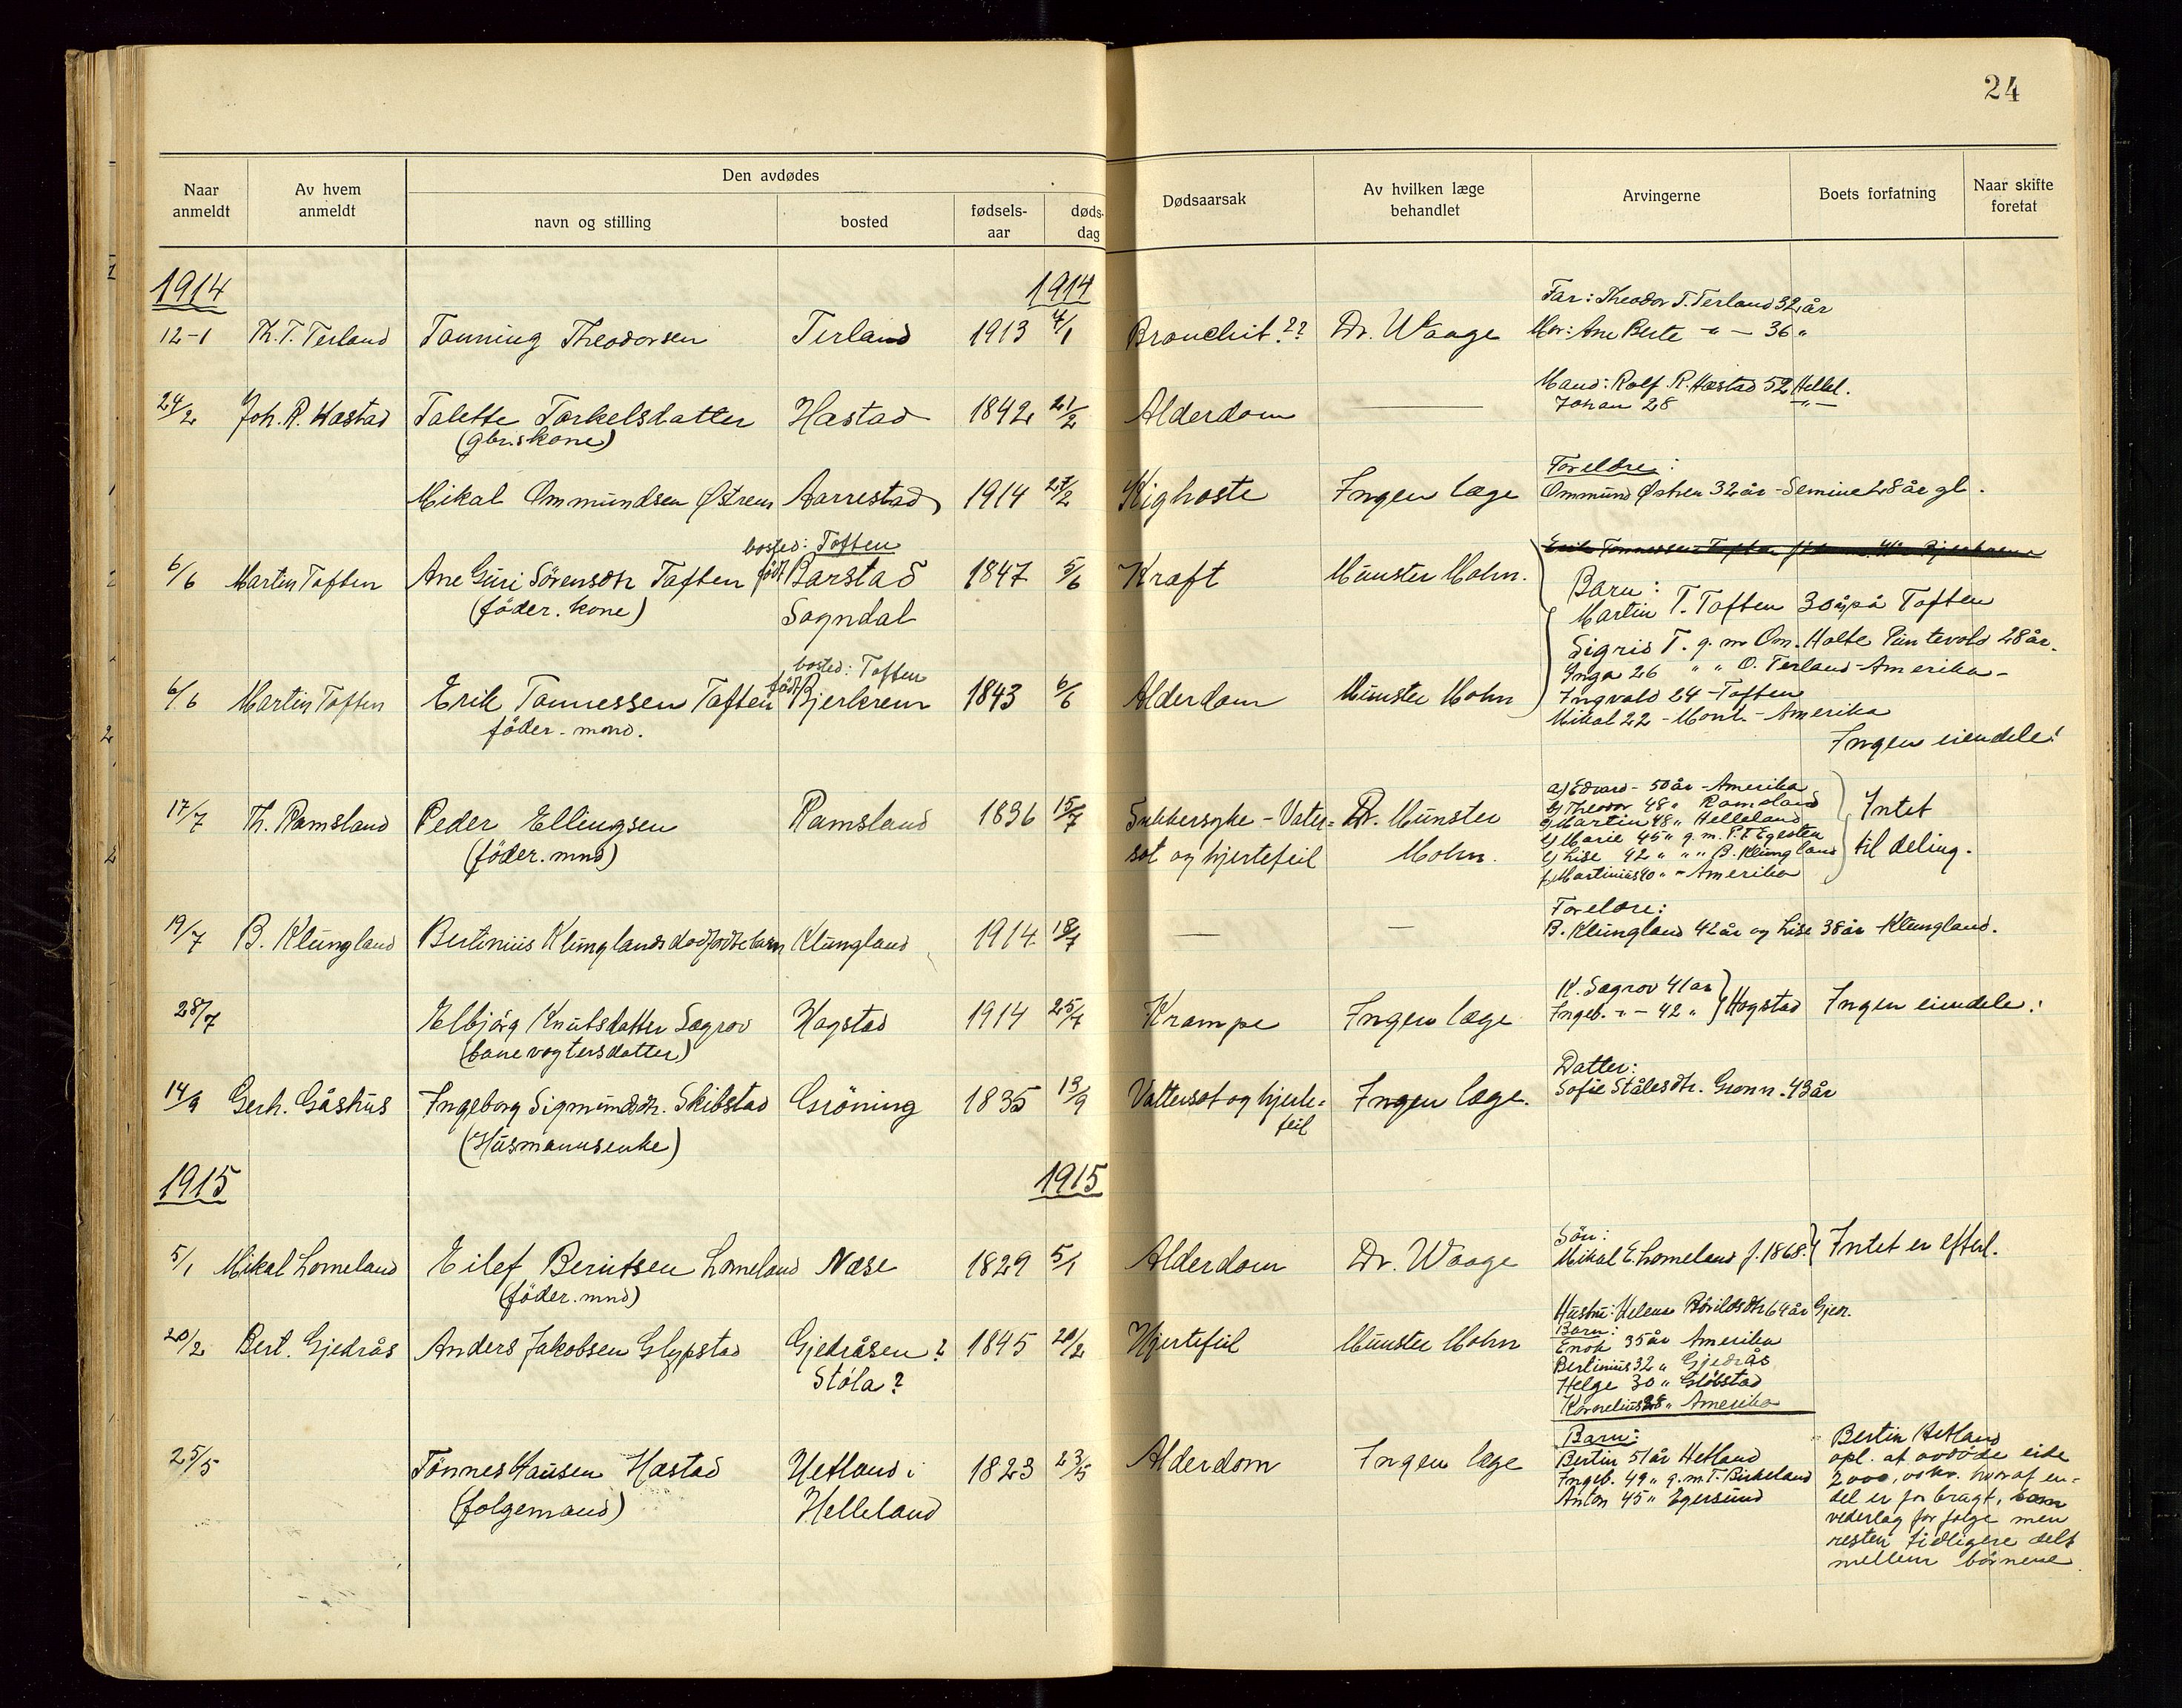 24
Naar anmeldt | Av hvem anmeldt | Den avdødes | Dødsaarsak | Av hvilken læge behandlet | Arvingerne | Boets forfatning | Naar skifte foretat
navn og stilling | bosted | fødsels-aar | døds-dag
1914 | 1914
Far: Theodor T. Terland 32 år
12-1 | Th. T. Terland | Tønning Theodorsen | Terland | 1913 | /1 | Bronchit?? | Dr. Waage | Mor: Ane Berte -"- 36 "
Mand: Rolf R. Hæstad 52 Hellel.
24/2 | Joh. R. Hæstad | Talette Torkelsdatter | Hæstad | 1842 | 21/2 | Alderdom | — | Johan 28 -"-
(gbr.s kone)
Foreldre:
Mikal Ommundsen Østrem | Aarrestad | 1914 | 27/2 | Kighoste | Ingen læge | Ommund Østren 32 år - Semine 28 år gl.
bosted: Toften
6/6 | Martin Toften | Ane Guri Sörensdtr Toften | født Barstad | 1847 | 5/6 | Kræft | Münster Mohn.
(föder. kone) | Sogndal
Barn:
Martin T. Toften 30 å på Toften
Sigrid T. g. m. Om. Holte Puntevold 28 år.
bosted: Toften
Inga 26 " " O. Terland - Amerika -
6/6 | Martin Toften | Erik Tønnessen Toften | født Bjerkrem | 1843 | 6/6 | Alderdom | Münster Mohn | Ingvald 24 - Toften
föder. mand. | Mikal 22 - Mont. - Amerika
Ingen eiendele!
a) Edvard - 50 år - Amerika
b) Theodor 48 " Ramsland
17/7 | Th. Ramsland | Peder Ellingsen | Ramsland | 1836 | 15/7 | Sukkersyke - Vater= | Dr. Münster | c) Martin 48 " Helleland | Intet
d) Marie 45 " g. m. P. T. Egesten
(föder. mnd) | sot og hjertefeil | Mohn. | e) Lise 42 " " " B. Klungland | til deling.
f) Martinius 40 " - Amerika
Foreldre:
19/7 | B. Klungland | Bertinius Klunglands dødfødte barn | Klungland | 1914 | 18/7 | — | — | B. Klungland 42 år og Lise 38 år - Klungland.
K. Sagrov 41 år
28/7 | Elbjörg Knutsdatter Sagrov | Hogstad | 1914 | 25/7 | Krampe | Ingen læge | Ingeb. -"- 42 " | Hogstad | Ingen eiendele!
(banevogtersdatter)
Datter:
14/9 | Gerh. Gåshus | Ingeborg Sigmundsdtr. Skibstad | Gröning | 1835 | 13/9 | Vattersot og hjerte= | Ingen læge. | Sofie Stålesdtr. Grønn. 43 år
(Husmannsenke) | feil
1915 | 1915
Sön:
5/1 | Mikal Lomeland | Eilef Berntsen Lomeland | Næse | 1829 | 5/1 | Alderdom | Dr. Waage | Mikal E. Lomeland f. 1868. | Intet er efterl.
(föder. mnd)
Hustru: Helene 64 år Gjed.
Barn:
20/2 | Bert. Gjedrås | Anders Jakobsen Glypstad | Gjedråsen? | 1845 | 20/2 | Hjertefeil | Münster Mohn | Enok 35 år Amerika
Stöla? | Bertinius 32 " Gjedrås
Helge 30 " Glöbstad
Kornelius 28 " Amerika
Barn: | Bertin Hetland
25/5 | Tönnes Hansen Hæstad | Hetland i | 1823 | 23/5 | Alderdom | Ingen læge | Bertin 51 år Hetland | opl. at avdöde eide
(folgemand) | Helleland | Ingeb. 49 " g. m. T. Birkeland | 2000,00 kr. hvoraf en=
Anton 45 " Egersund | del er forbragt, som
vederlag for folge men
resten tidligere delt
mellem börnene.